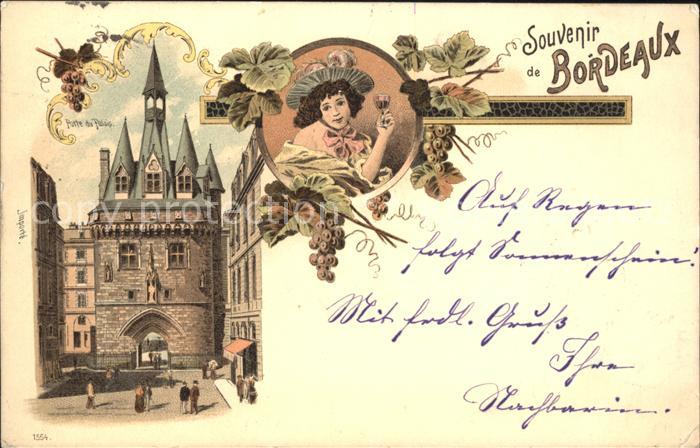 Souvenir
de BORDEAUX
Porte du Palais.
Importé.
Auf Regen
folgt Sonnenschein!
Mit frdl. Gruß
Ihre
Nachbarin.
1554.
copyright protected